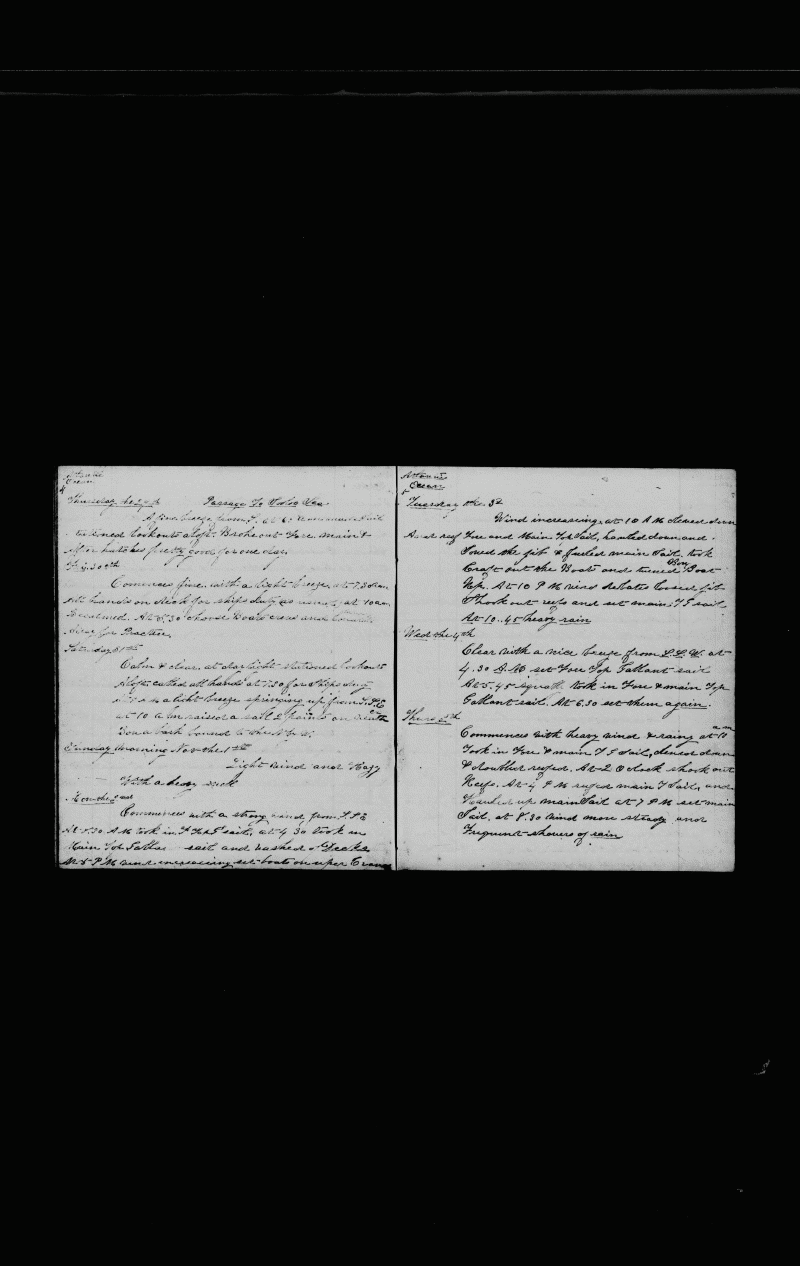 Atlantic
Ocean
4
Thursday the 29th Passage To
A fine breeze from at 6:
stationed lookouts aloft. Broke out Fore main &
After hatches pretty good for one day.
Fri 30th
Commences fine with a light breeze, at 7.30 am
all hands on deck for ships duty as usual, at 10 am
Becalmed. At 8.30 chose Boats crews and
for Practice
Saturday 31th
Calm & clear, at daylight stationed lookouts
Aloft. called all hands at 7.30 for Ships duty
a light breeze springing up from S.S.E
at 10 a.m raised a sail 2 points on
Bow a bark bound to the N by
Sunday morning Nov the 1th
Light wind and Hazy
With a heavy
Mon the 2nd
Commences with a strong wind from S.S.E
At 1.30 A M took in sail, at 4 30 took in
Main Top Gallant sail and washed Decks
At 5 P M wind increasing set boats on uper Cranes
Atlantic
Ocean
5
Tuesday the 3d
Wind increasing, at 10 A M clewed down
And reef Fore and Main Top Sail, hauled down and
Stowed the jib & furled main Sail. took
Craft out the Boats and turned Bow Boat
Up. At 10 P M wind abates loosed jib
Shook out reefs and set main T sail
At 10..45 heavy rain
Wed the 4th
Clear with a nice breeze from S.S.W. at
4.30 A.M set Fore Top Gallant sail
At 5.45 squall, took in Fore & main Top
Gallant sail. At 6.30 set them again.
Thurs 5th
Commences with heavy wind & rainy at 10 am
Took in Fore & main T Sail, clewed down
& doubled reefed. At 2 O clock shook out
Reefs. At 4 P M reefed main T Sail, and
Hauled up main Sail at 7 P M set main
Sail, at 8.30 wind more steady and
Frequent showers of rain